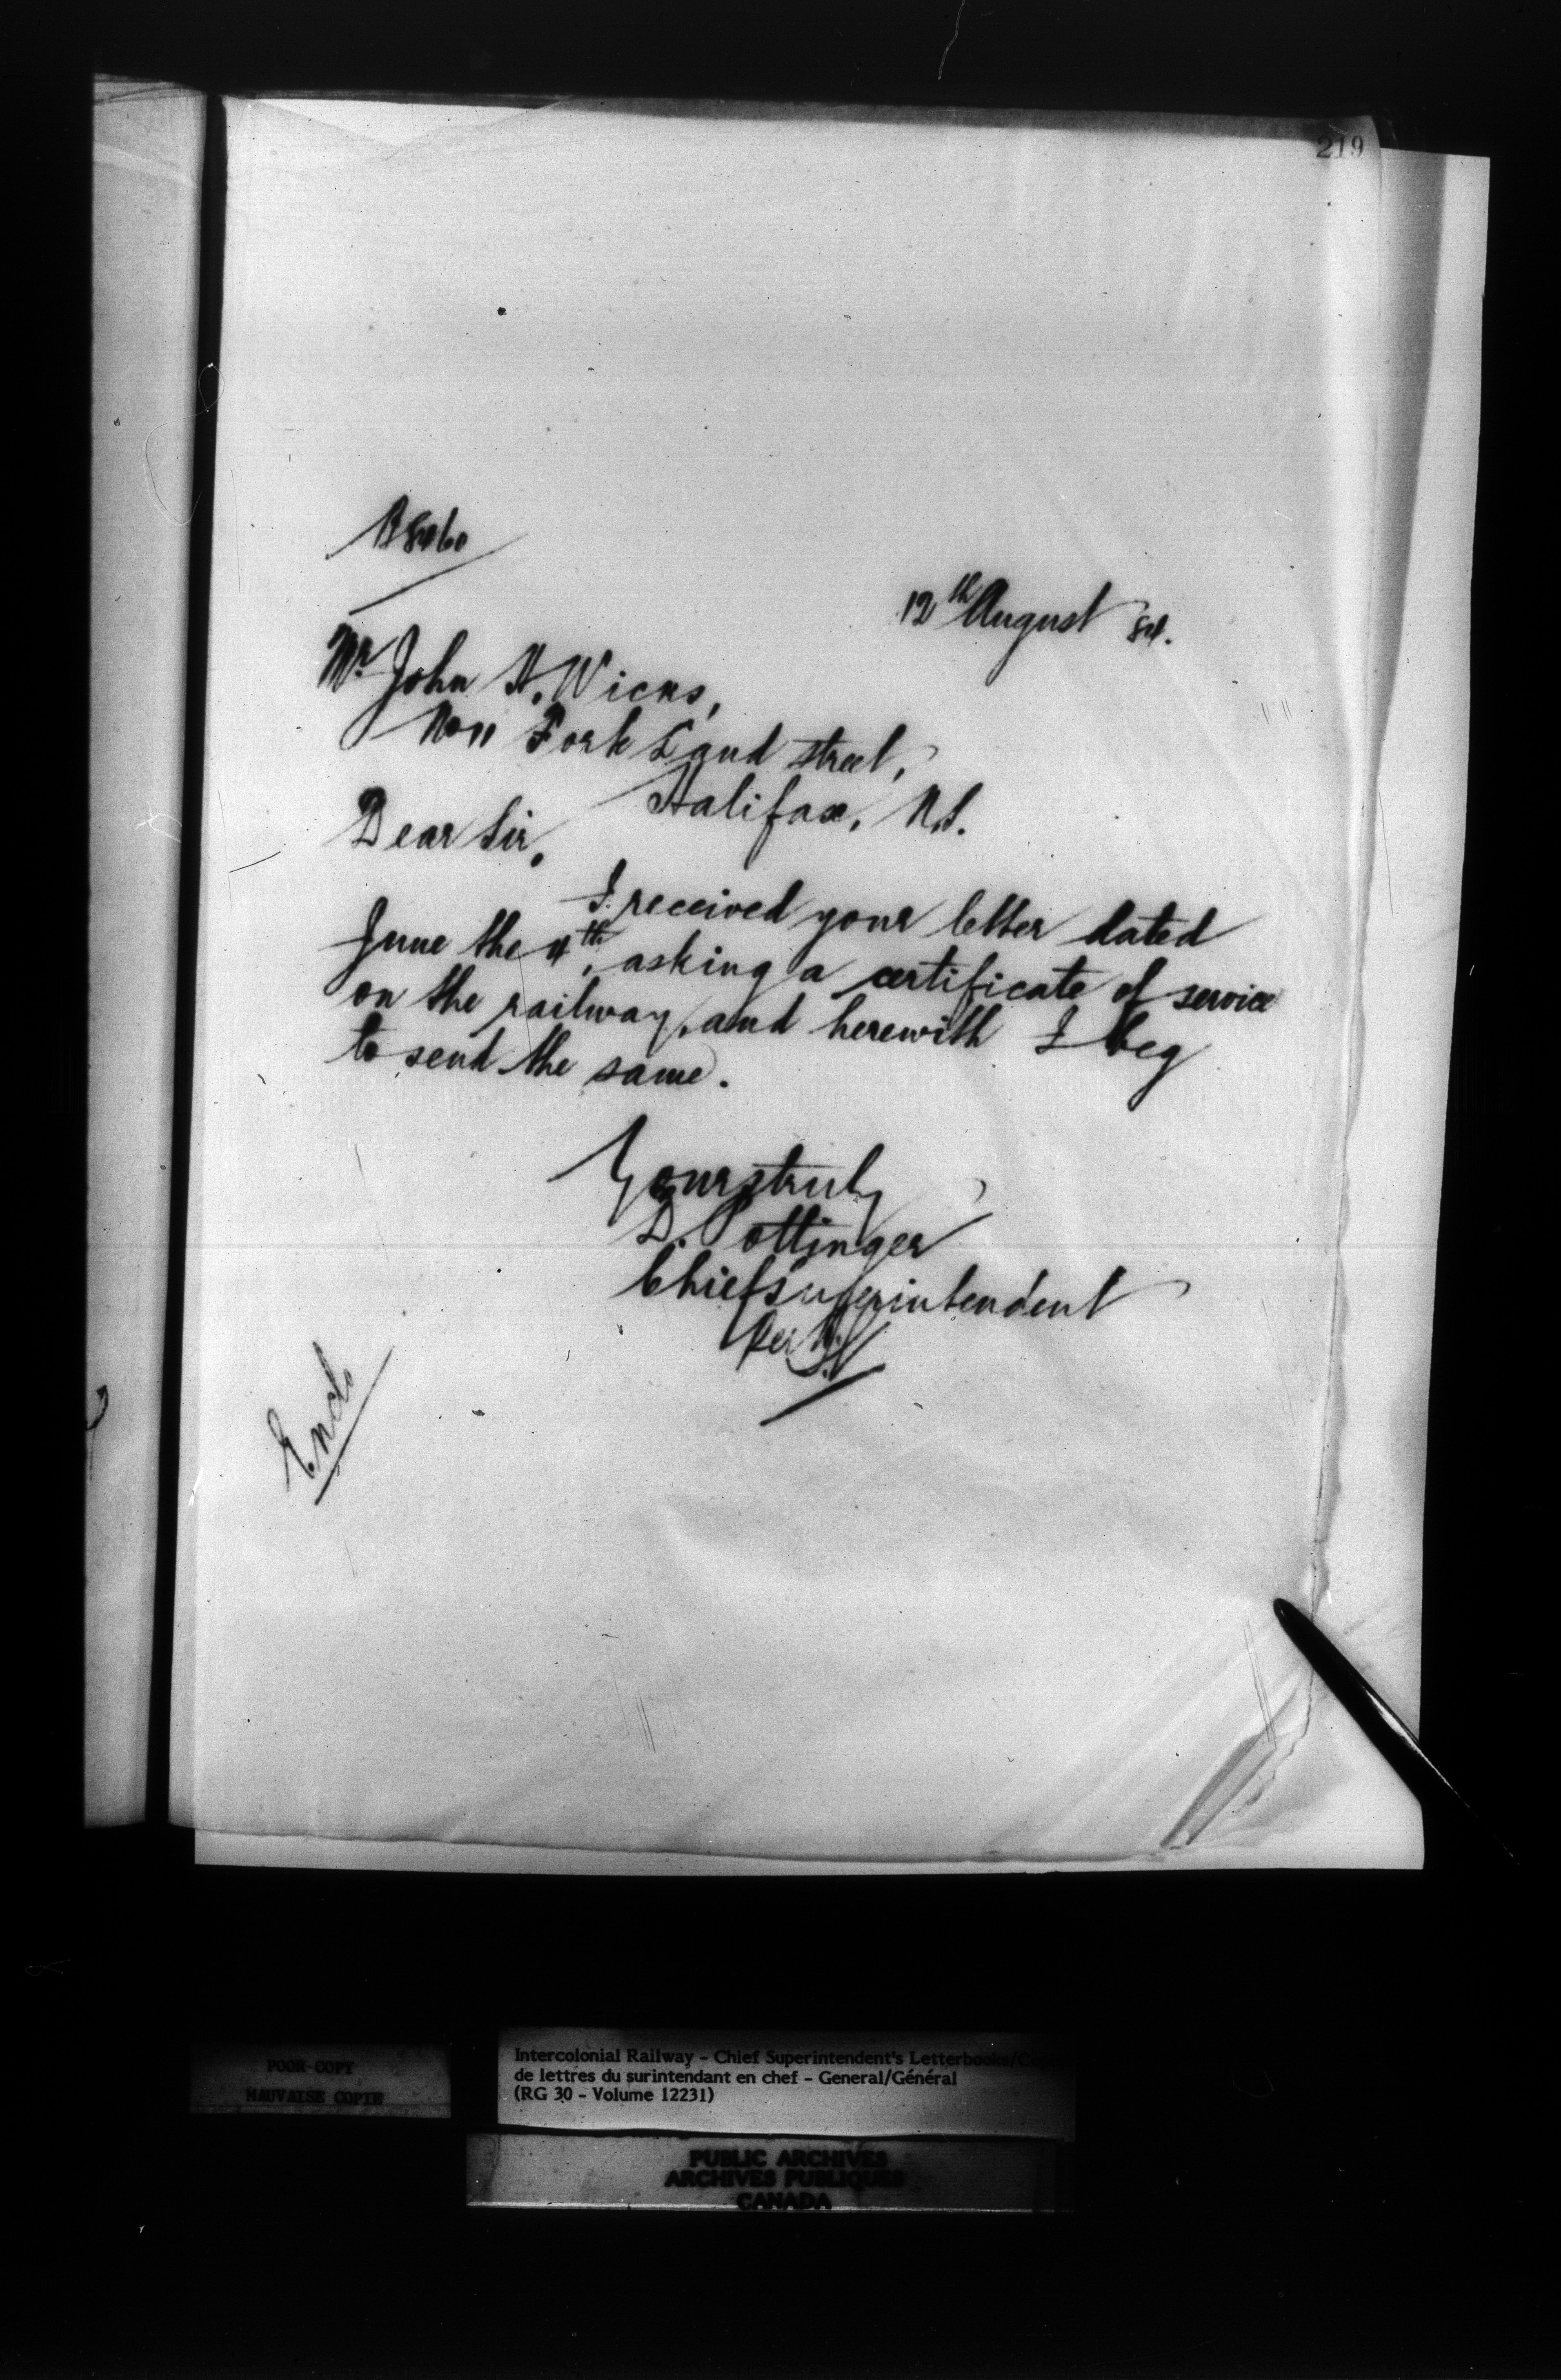 219
12th August 84.
Mr John H. Wicks,
No 11 Fork Land street,
Halifax, N.S.
Dear Sir,
I received your letter dated
June the 4th, asking a certificate of service
on the railway, and herewith I beg
to send the same.
Yours truly
D. Pottinger
Chief Superintendent
Per
Encl.
POOR COPY
MAUVAISE COPIE
Intercolonial Railway - Chief Superintendent's Letterbooks/
de lettres du surintendant en chef - General/Général
(RG 30 - Volume 12231)
PUBLIC ARCHIVES
ARCHIVES PUBLIQUES
CANADA